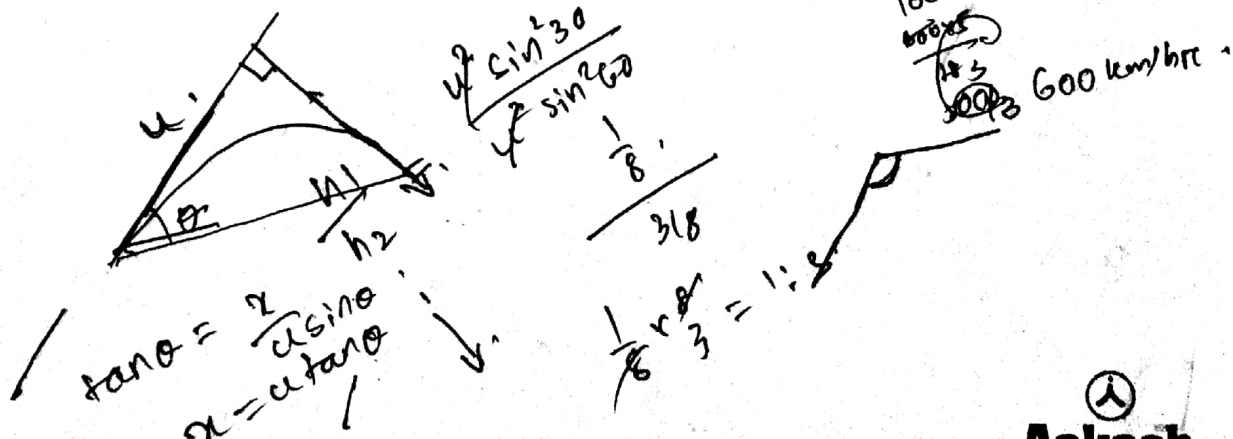 u
θ
h1
h2
tanθ = x / usinθ
x = u tanθ
u² sin²30
u² sin²60
1/8
3/8
1/8 × 8/3 = 1:3
600 km/hr.
Aakash